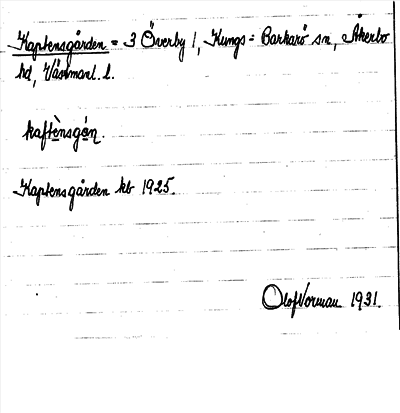 Kaptensgården = 3 Överby 1, Kungs-Barkarö sn, Åkerbo
hd, Västmanl. l.
kaftènsgán.
Kaptensgården kb 1925.
Olof Norman 1931.